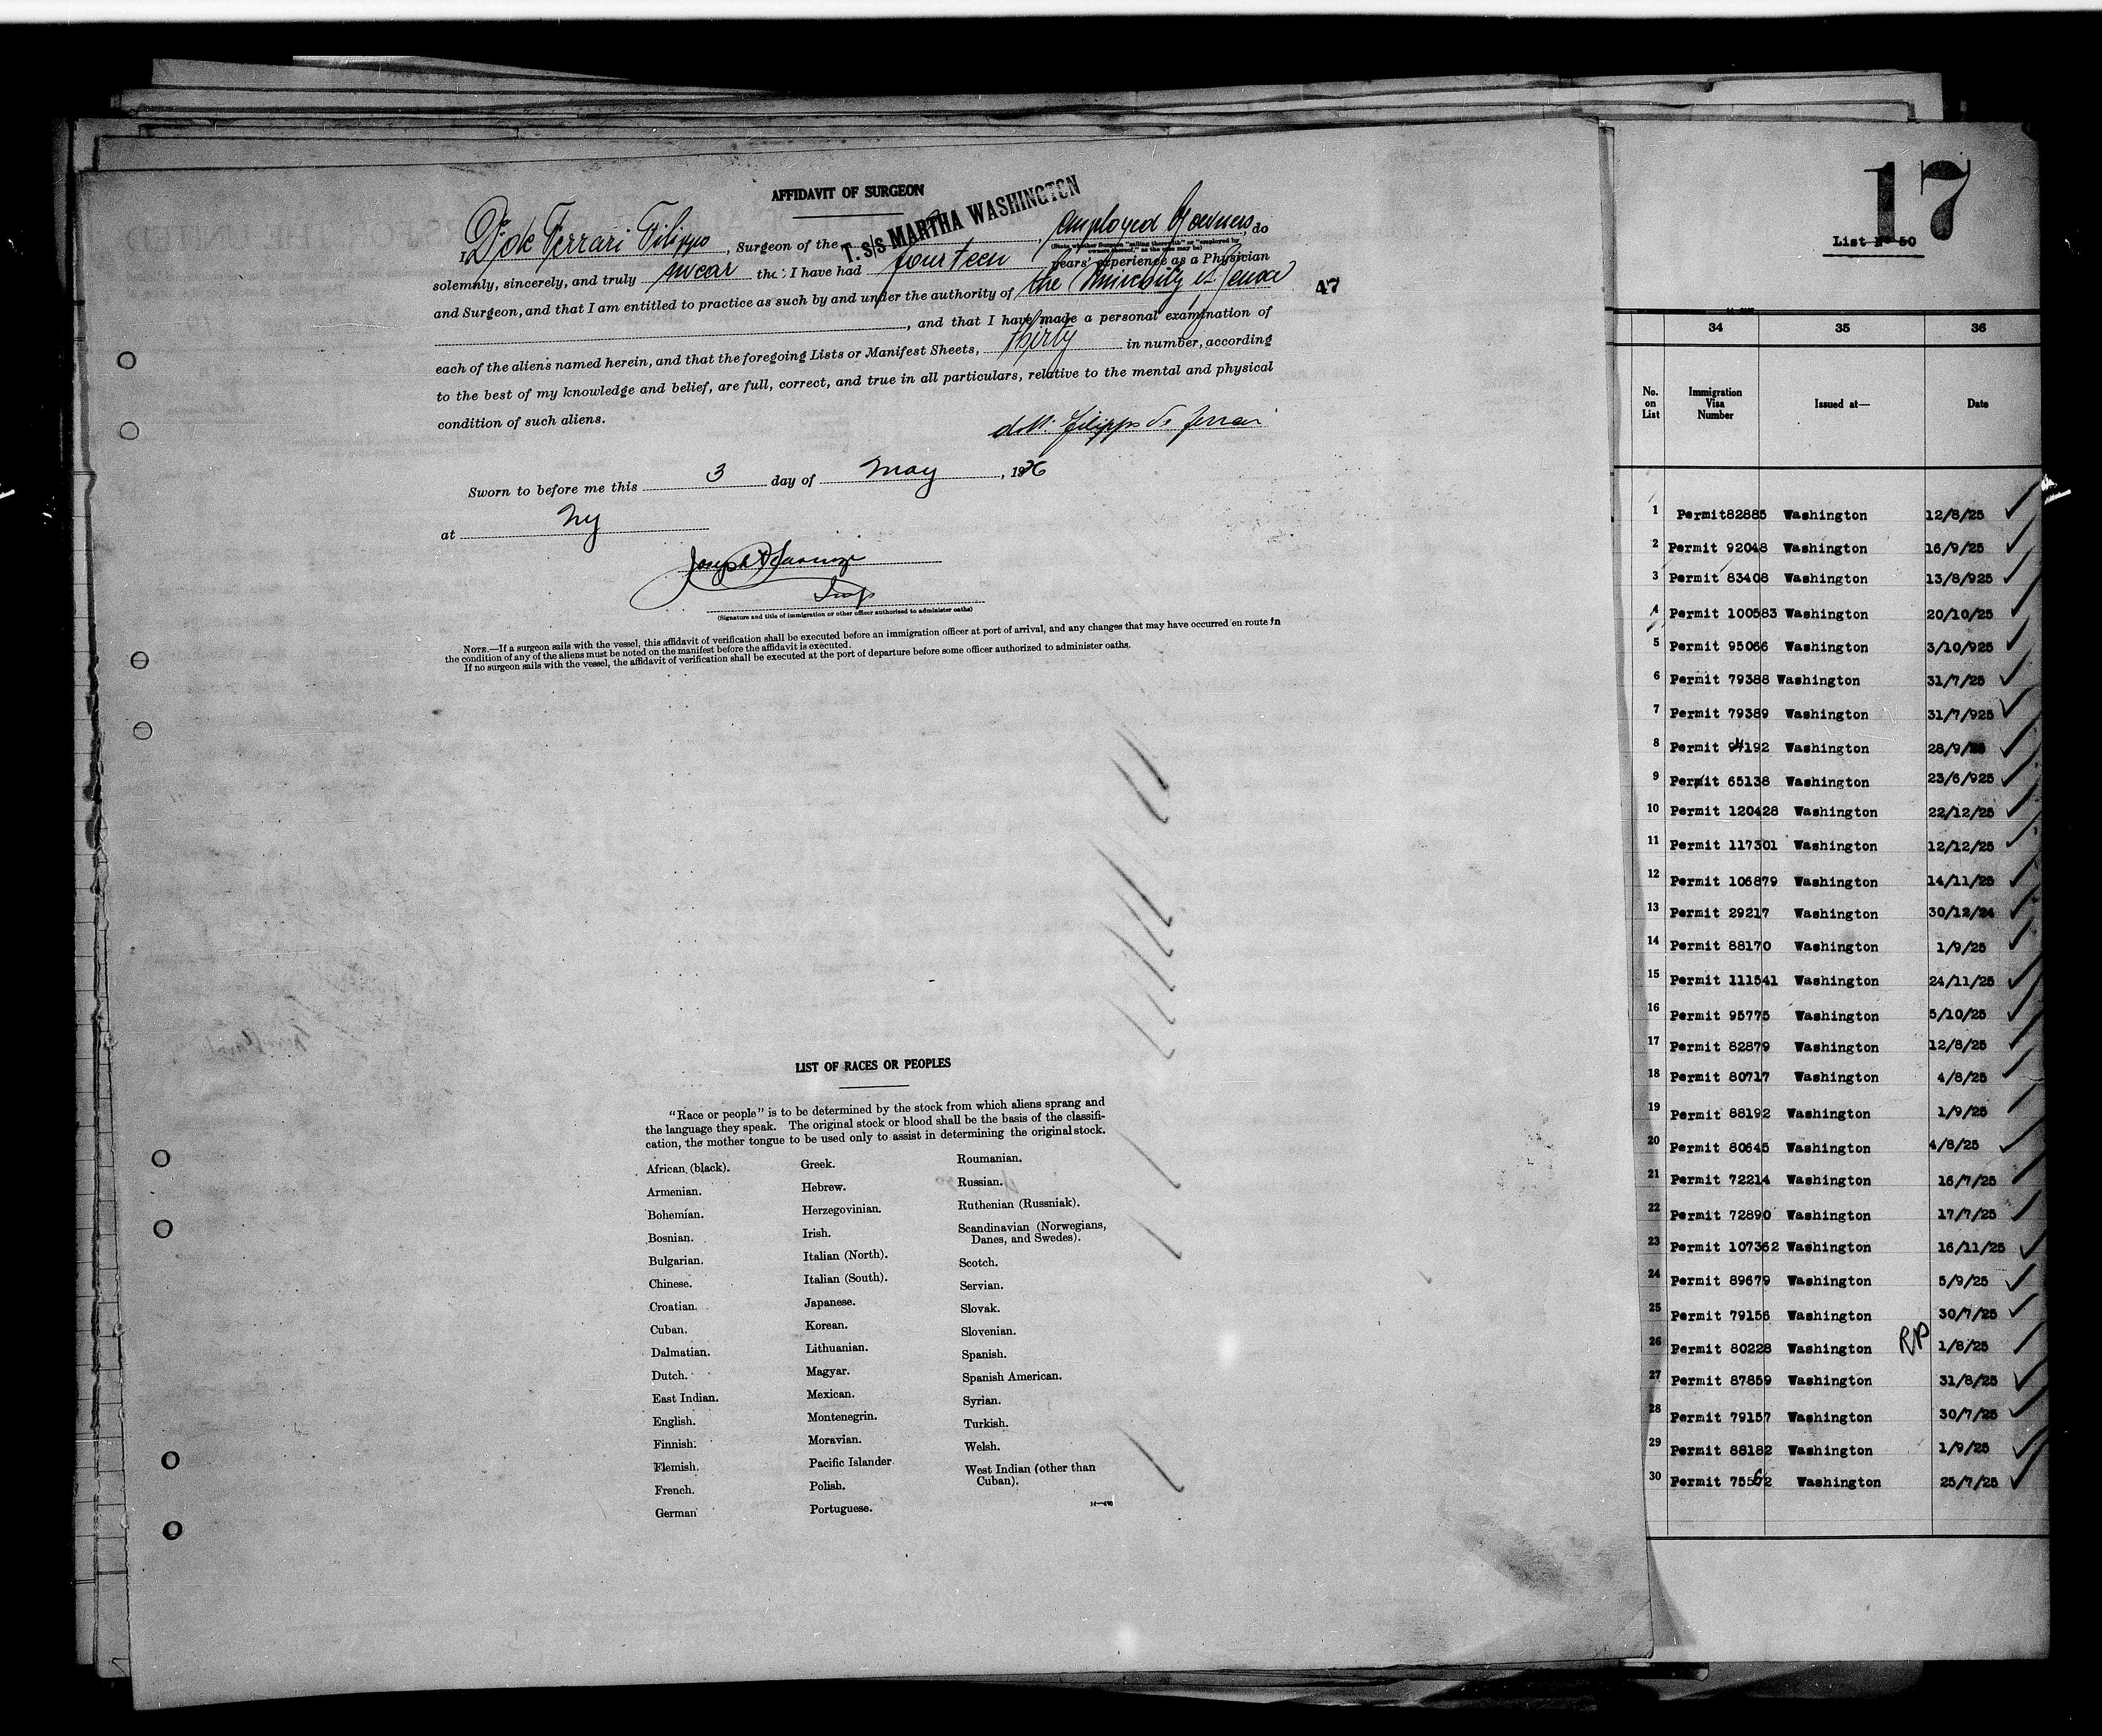 AFFIDAVIT OF SURGEON
T. S/S MARTHA WASHINGTON
I, Dr de Ferrari Filippo, Surgeon of the employed by owners, do
(State whether Surgeon "sailing therewith" or "employed by owners thereof," as the case may be)
solemnly, sincerely, and truly swear that I have had fourteen years' experience as a Physician
and Surgeon, and that I am entitled to practice as such by and under the authority of the University of Genoa
47
, and that I have made a personal examination of
each of the aliens named herein, and that the foregoing Lists or Manifest Sheets, thirty in number, according
to the best of my knowledge and belief, are full, correct, and true in all particulars, relative to the mental and physical
condition of such aliens.
dott. Filippo De Ferrari
Sworn to before me this 3 day of May, 1926
at NY
Insp
(Signature and title of immigration or other officer authorized to administer oaths)
NOTE.—If a surgeon sails with the vessel, this affidavit of verification shall be executed before an immigration officer at port of arrival, and any changes that may have occurred en route in
the condition of any of the aliens must be noted on the manifest before the affidavit is executed.
If no surgeon sails with the vessel, the affidavit of verification shall be executed at the port of departure before some officer authorized to administer oaths.
LIST OF RACES OR PEOPLES
"Race or people" is to be determined by the stock from which aliens sprang and
the language they speak. The original stock or blood shall be the basis of the classifi-
cation, the mother tongue to be used only to assist in determining the original stock.
African (black).
Armenian.
Bohemian.
Bosnian.
Bulgarian.
Chinese.
Croatian.
Cuban.
Dalmatian.
Dutch.
East Indian.
English.
Finnish.
Flemish.
French.
German
Greek.
Hebrew.
Herzegovinian.
Irish.
Italian (North).
Italian (South).
Japanese.
Korean.
Lithuanian.
Magyar.
Mexican.
Montenegrin.
Moravian.
Pacific Islander.
Polish.
Portuguese.
Roumanian.
Russian.
Ruthenian (Russniak).
Scandinavian (Norwegians,
Danes, and Swedes).
Scotch.
Servian.
Slovak.
Slovenian.
Spanish.
Spanish American.
Syrian.
Turkish.
Welsh.
West Indian (other than
Cuban).
17
List Nº 50
34 35 36
No. on List Immigration Visa Number Issued at— Date
1 Permit 82885 Washington 12/8/25
2 Permit 92048 Washington 16/9/25
3 Permit 83408 Washington 13/8/925
4 Permit 100583 Washington 20/10/25
5 Permit 95066 Washington 3/10/925
6 Permit 79388 Washington 31/7/25
7 Permit 79389 Washington 31/7/925
8 Permit 94192 Washington 28/9/25
9 Permit 65138 Washington 23/6/925
10 Permit 120428 Washington 22/12/25
11 Permit 117301 Washington 12/12/25
12 Permit 106879 Washington 14/11/25
13 Permit 29217 Washington 30/12/24
14 Permit 88170 Washington 1/9/25
15 Permit 111541 Washington 24/11/25
16 Permit 95775 Washington 5/10/25
17 Permit 82879 Washington 12/8/25
18 Permit 80717 Washington 4/8/25
19 Permit 88192 Washington 1/9/25
20 Permit 80645 Washington 4/8/25
21 Permit 72214 Washington 16/7/25
22 Permit 72890 Washington 17/7/25
23 Permit 107362 Washington 16/11/25
24 Permit 89679 Washington 5/9/25
25 Permit 79156 Washington 30/7/25
26 Permit 80228 Washington RP 1/8/25
27 Permit 87859 Washington 31/8/25
28 Permit 79157 Washington 30/7/25
29 Permit 88182 Washington 1/9/25
30 Permit 75562 Washington 25/7/25